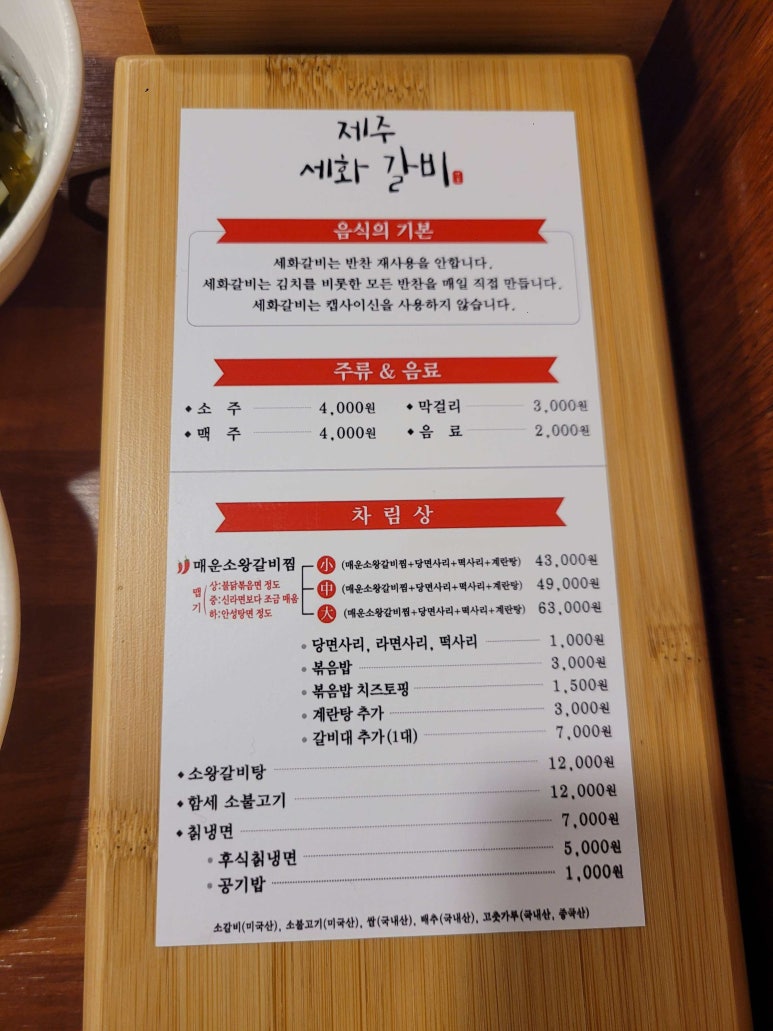 제주
세화 갈비
음식의 기본
세화갈비는 반찬 재사용을 안합니다.
세화갈비는 김치를 비롯한 모든 반찬을 매일 직접 만듭니다.
세화갈비는 캡사이신을 사용하지 않습니다.
주류 & 음료
소 주 4,000원 막걸리 3,000원
맥 주 4,000원 음 료 2,000원
차림상
매운소왕갈비찜 小 (매운소왕갈비찜+당면사리+떡사리+계란탕) 43,000원
맵기 상:불닭볶음면 정도 中 (매운소왕갈비찜+당면사리+떡사리+계란탕) 49,000원
중:신라면보다 조금 매움
하:안성탕면 정도 大 (매운소왕갈비찜+당면사리+떡사리+계란탕) 63,000원
당면사리, 라면사리, 떡사리 1,000원
볶음밥 3,000원
볶음밥 치즈토핑 1,500원
계란탕 추가 3,000원
갈비대 추가(1대) 7,000원
소왕갈비탕 12,000원
함세 소불고기 12,000원
칡냉면 7,000원
후식칡냉면 5,000원
공기밥 1,000원
소갈비(미국산), 소불고기(미국산), 쌀(국내산), 배추(국내산), 고춧가루(국내산, 중국산)